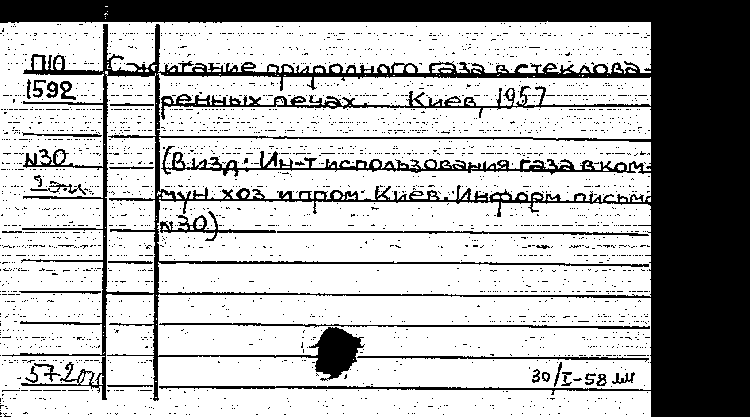 П10 Сжигание природного газа в стеклова-
1592 ренных печах. Киев, 1957
N30 (В изд: Ин-т использования газа в ком-
мун. хоз и пром Киев. Информ письмо
N30)
30/I-58